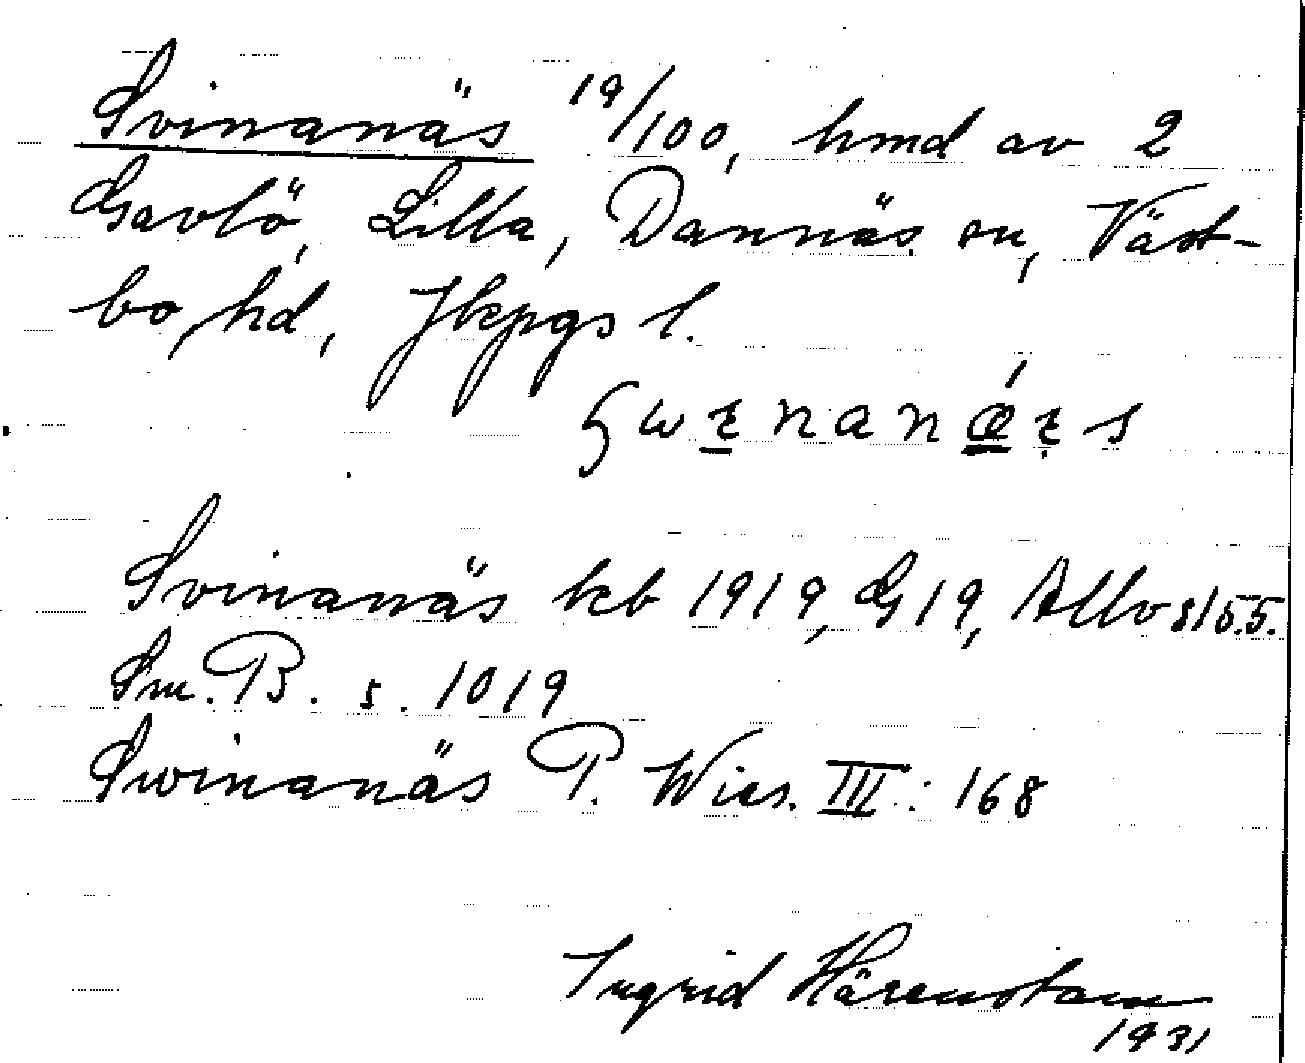 Svinanäs 19/100, hmd av 2
Gavlö, Lilla, Dannäs sn, Väst-
bo hd, Jkpgs l.
Svinanäs kb 1919, G 19, Allvs 155.
Sm. B. s. 1019
Swinanäs P. Wies. III: 168
Ingrid Härenstam
1931